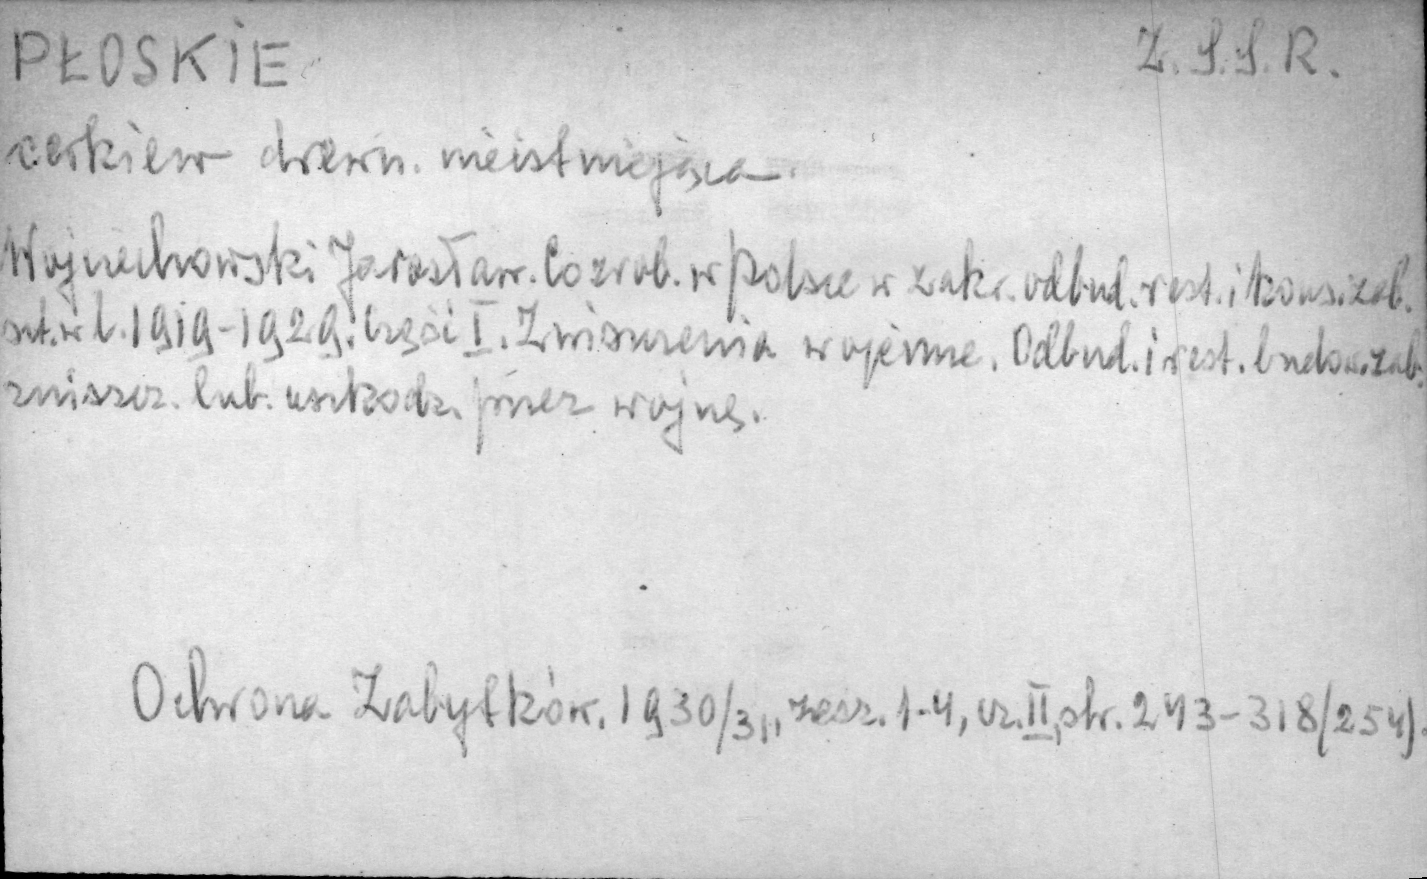 PŁOSKIE Z.S.S.R.
cerkiew drewn. nieistniejąca.
Wojciechowski Jarosław. Co zrob. w Polsce w zakr. odbud. rest. i kons. zab.
szt. w l. 1919-1929. Część I. Zniszczenia wojenne. Odbud. i rest. budow. zab.
zniszcz. lub. uszkodz. przez wojnę.
Ochrona Zabytków. 1930/31, zesz. 1-4, cz. II, str. 243-318/254).